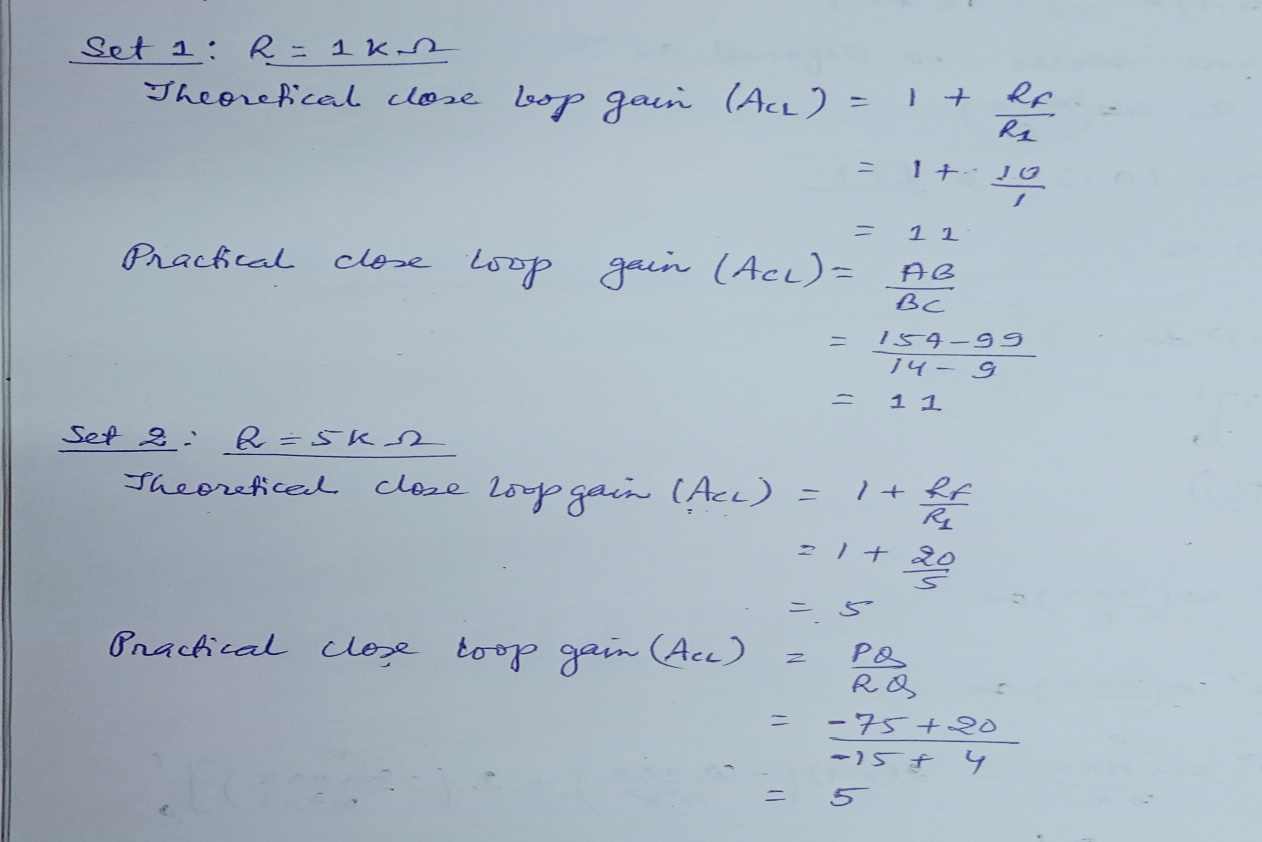 Set 1: R = 1 kΩ
Theoretical close loop gain (ACL) = 1 + Rf
R1
= 1 + 10
1
= 11
Practical close loop gain (ACL) = AB
BC
= 154-99
14-9
= 11
Set 2: R = 5k Ω
Theoretical close loop gain (ACL) = 1 + Rf
R1
= 1 + 20
5
= 5
Practical close loop gain (ACL) = PQ
RQ
= -75 + 20
-15 + 4
= 5